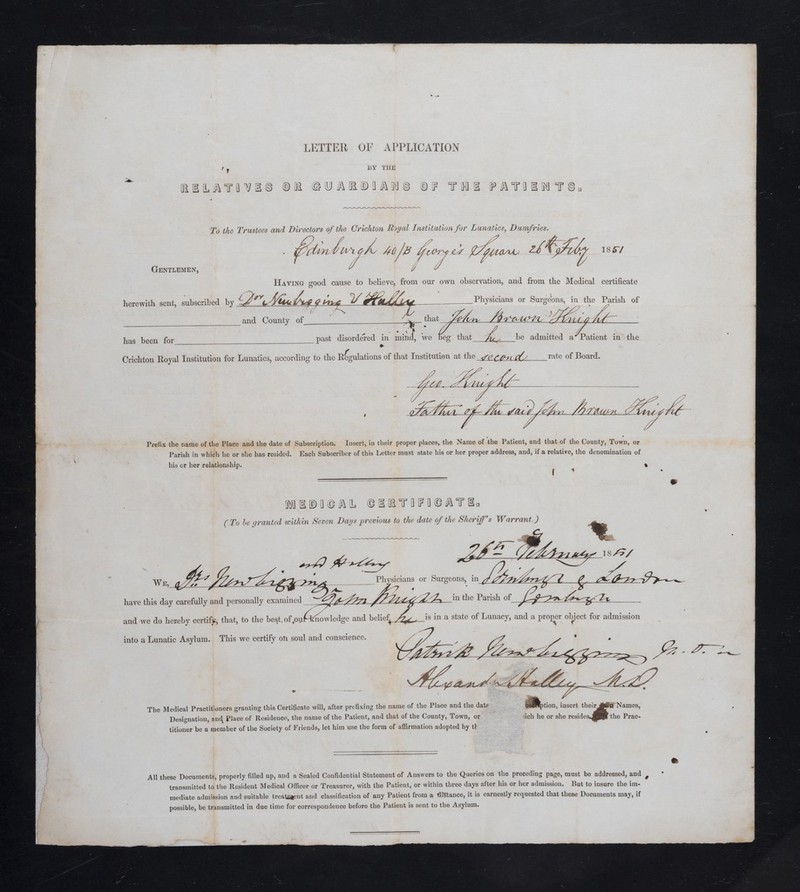 LETTER OF APPLICATION
BY THE
RELATIVES OR GUARDIANS OF THE PATIENTS.
To the Trustees and Directors of the Crichton Royal Institution for Lunatics, Dumfries.
Edinburgh 40/B George's Square 26th Feby 1851
GENTLEMEN,
HAVING good cause to believe, from our own observation, and from the Medical certificate
herewith sent, subscribed by Drs Newbigging & Halley Physicians or Surgeons, in the Parish of
and County of that John Brown Knight
has been for past disordered in mind, we beg that he be admitted a Patient in the
Crichton Royal Institution for Lunatics, according to the Regulations of that Institution at the second rate of Board.
Geo. Knight
Father of the said John Brown Knight
Prefix the name of the Place and the date of Subscription. Insert, in their proper places, the Name of the Patient, and that of the County, Town, or
Parish in which he or she has resided. Each Subscriber of this Letter must state his or her proper address, and, if a relative, the denomination of
his or her relationship.
MEDICAL CERTIFICATE.
(To be granted within Seven Days previous to the date of the Sheriff's Warrant.)
26th February 1851
and Halley
WE, Drs Newbigging Physicians or Surgeons, in Edinburgh & London
have this day carefully and personally examined John Knight in the Parish of Edinburgh
and we do hereby certify, that, to the best of our knowledge and belief, he is in a state of Lunacy, and a proper object for admission
into a Lunatic Asylum. This we certify on soul and conscience.
Patrick Newbigging M.D.
Alexander Halley M.D.
The Medical Practitioners granting this Certificate will, after prefixing the name of the Place and the date insert their Names,
Designation, and Place of Residence, the name of the Patient, and that of the County, Town, or he or she resides the Prac-
titioner be a member of the Society of Friends, let him use the form of affirmation adopted by
All these Documents, properly filled up, and a Sealed Confidential Statement of Answers to the Queries on the preceding page, must be addressed, and
transmitted to the Resident Medical Officer or Treasurer, with the Patient, or within three days after his or her admission. But to insure the im-
mediate admission and suitable treatment and classification of any Patient from a distance, it is earnestly requested that these Documents may, if
possible, be transmitted in due time for correspondence before the Patient is sent to the Asylum.